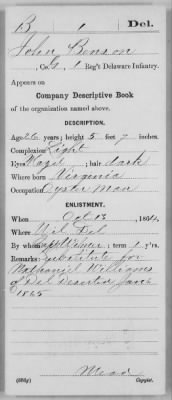 B 1 Del.
John Benson
Co. G, 1 Reg't Delaware Infantry.
Appears on
Company Descriptive Book
of the organization named above.
DESCRIPTION.
Age 26 years; height 5 feet 7 inches.
Complexion Light
Eyes Hazel; hair dark
Where born Virginia
Occupation Oyster Man
ENLISTMENT.
When Oct 13, 1864.
Where Wil Del
By whom Capt Wilmer; term 1 y'rs.
Remarks: Substitute for
Nathaniel Williams
of Del Deserted
1865
Mead
(383g) Copyist.